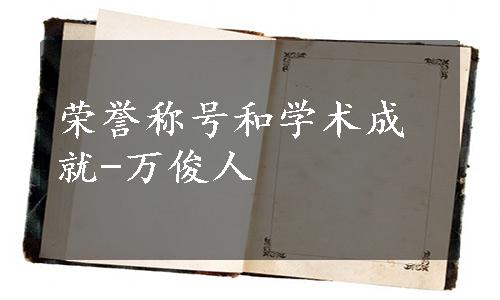 荣誉称号和学术成
就-万俊人